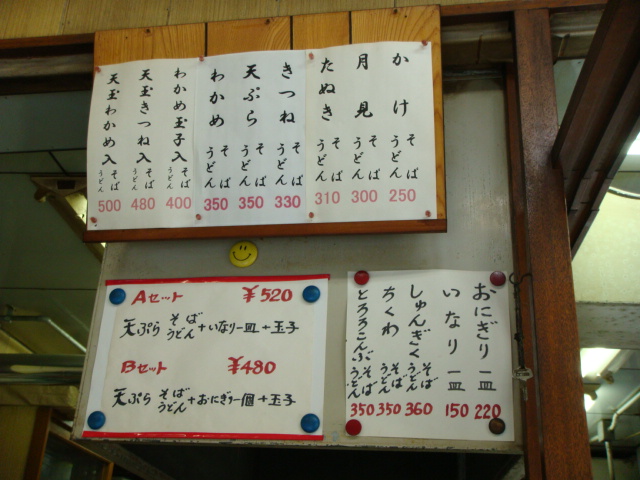 かけ そば うどん 250
月見 そば うどん 300
たぬき そば うどん 310
きつね そば うどん 330
天ぷら そば うどん 350
わかめ そば うどん 350
わかめ玉子入 そば うどん 400
天玉きつね入 そば うどん 480
天玉わかめ入 そば うどん 500
Aセット ¥520
天ぷら そば うどん +いなり一皿+玉子
Bセット ¥480
天ぷら そば うどん +おにぎり一個+玉子
おにぎり一皿 220
いなり一皿 150
しゅんぎく そば うどん 360
ちくわ そば うどん 350
とろろこんぶ そば うどん 350